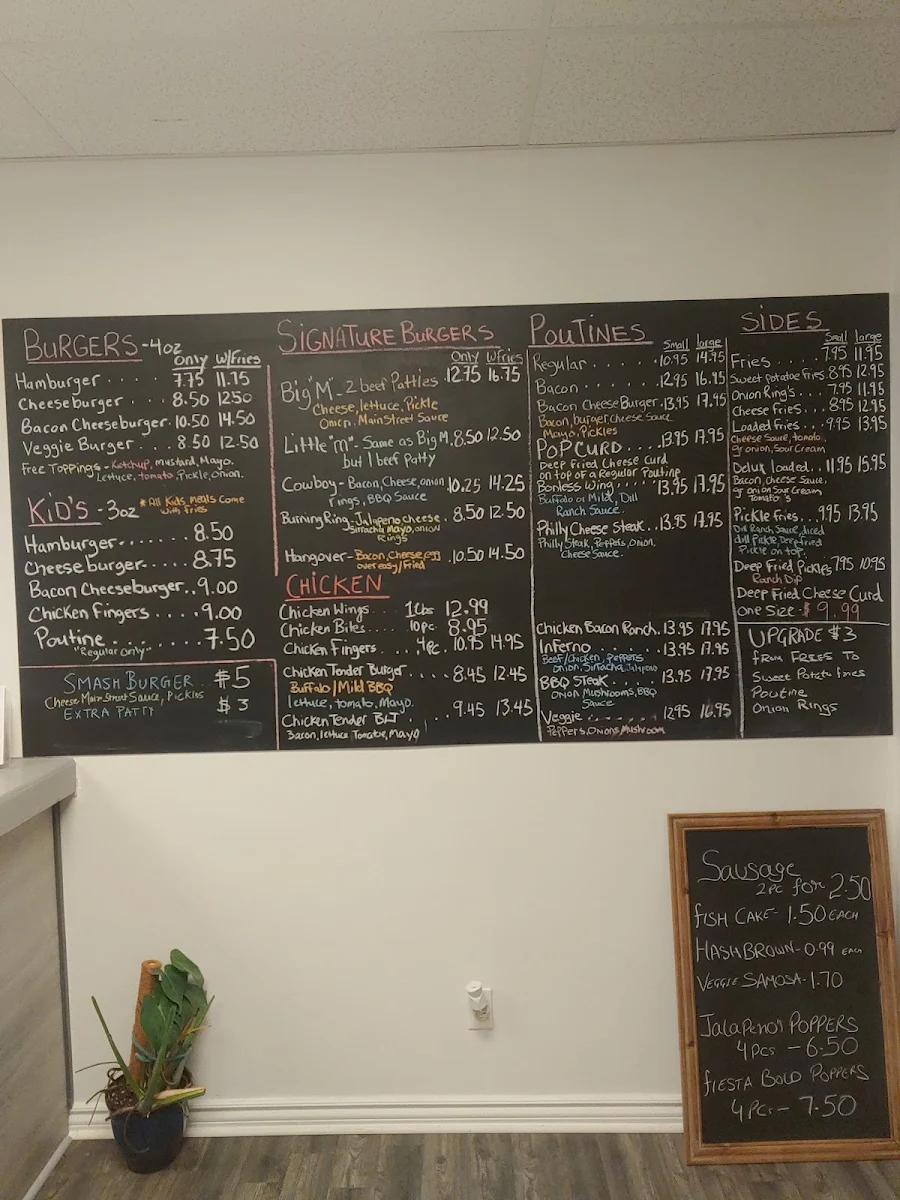 BURGERS - 4oz
Only W/Fries
Hamburger ..... 7.75 11.75
Cheeseburger ... 8.50 1250
Bacon Cheeseburger. 10.50 14.50
Veggie Burger ... 8.50 12.50
Free Toppings - Ketchup, mustard, Mayo.
Lettuce, tomato, Pickle, onion.
KiD'S - 3oz
* All Kids Meals Come
with fries
Hamburger....... 8.50
Cheeseburger..... 8.75
Bacon Cheeseburger.. 9.00
Chicken Fingers .... 9.00
Poutine ........ 7.50
"Regular only"
SMASH BURGER $5
Cheese Main Street Sauce, Pickles
EXTRA PATTY $3
SIGNATURE BURGERS
Only W/Fries
Big "M" - 2 beef Patties 12.75 16.75
Cheese, lettuce, Pickle
Onion, Main Street Sauce
Little "m" - Same as Big M, 8.50 12.50
but 1 beef patty
Cowboy - Bacon, Cheese, onion 10.25 14.25
Rings, BBQ Sauce
Burning Ring - Jalapeno cheese 8.50 12.50
Sirracha Mayo, onion
Rings
Hangover - Bacon, Cheese, egg 10.50 14.50
over easy/Fried
CHICKEN
Chicken Wings... 1Lbs 12.99
Chicken Bites... 10pc. 8.95
Chicken Fingers ... 4pc. 10.95 14.95
Chicken Tender Burger 8.45 12.45
Buffalo/Mild BBQ
lettuce, tomato, Mayo.
Chicken Tender BLT ... 9.45 13.45
Bacon, lettuce Tomatoe, Mayo
POUTINES
Small large
Regular ....... 10.95 14.95
Bacon ....... 12.95 16.95
Bacon Cheese Burger. 13.95 17.95
Bacon, burger, Cheese Sauce
Mayo, Pickles
POP CURD ... 13.95 17.95
Deep Fried Cheese Curd
on top of a Regular Poutine
Bonless Wing ..... 13.95 17.95
Buffalo or Mild, Dill
Ranch Sauce.
Philly Cheese Steak .. 13.95 17.95
Philly Steak, Peppers, Onion,
Cheese Sauce.
Chicken Bacon Ranch. 13.95 17.95
Inferno ........ 13.95 17.95
Beef/Chicken, Peppers
onion, Sirracha, Jalapeno
BBQ Steak..... 13.95 17.95
Onion Mushrooms, BBQ
Sauce
Veggie ........ 12.95 16.95
Peppers, Onions, Mushroom
SIDES
Small large
Fries ..... 7.95 11.95
Sweet potatoe Fries. 8.95 12.95
Onion Ring's .... 7.95 11.95
Cheese Fries... 8.95 12.95
Loaded Fries .. 9.95 13.95
Cheese Sauce, tomato,
gr onion, Sour Cream
Delux loaded.. 11.95 15.95
Bacon, cheese Sauce,
gr onion Sour Cream
Tomato's
Pickle Fries... 9.95 13.95
Dill Ranch Sauce, diced
dill Pickle, Deep fried
Pickle on top.
Deep Fried Pickles 7.95 10.95
Ranch Dip
Deep Fried Cheese Curd
one Size - $9.99
UPGRADE $3
FROM FRIES TO
Sweet Potato fries
Poutine
Onion Rings
Sausage
2PC for 2.50
FISH CAKE - 1.50 EACH
HASHBROWN - 0.99 EACH
VEGGIE SAMOSA - 1.70
Jalapeno's POPPERS
4PCs - 6.50
FIESTA BOLD POPPERS
4PCs - 7.50